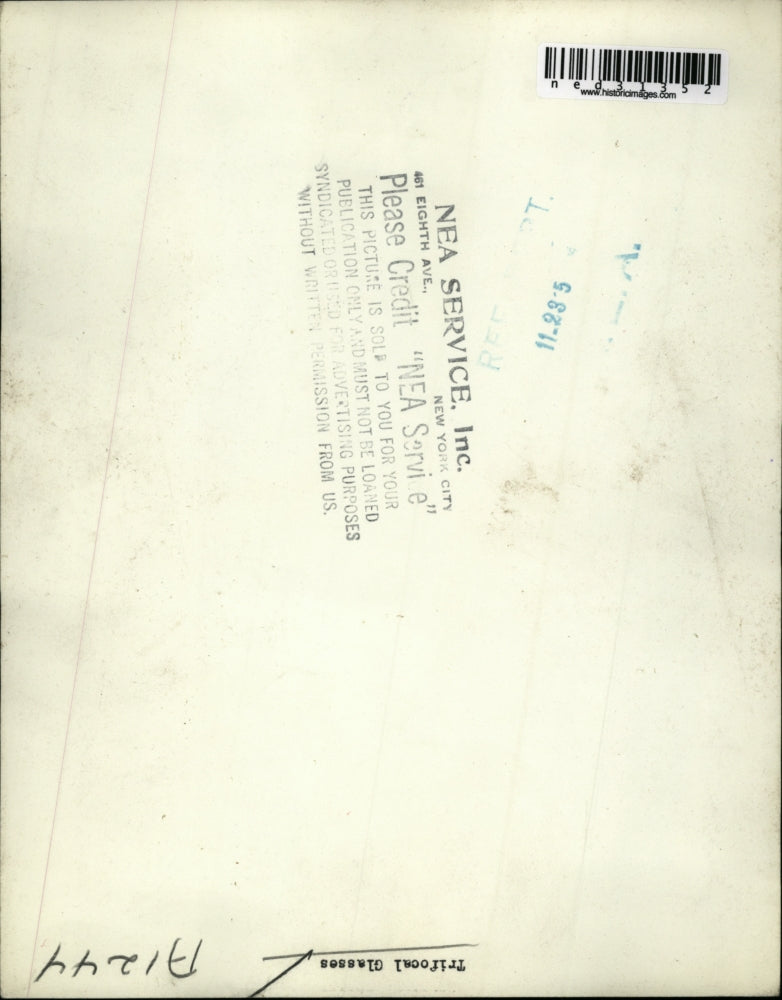 ned31352
www.historicimages.com
NEA SERVICE, Inc.
461 EIGHTH AVE., NEW YORK CITY
Please Credit "NEA Service"
THIS PICTURE IS SOLD TO YOU FOR YOUR
PUBLICATION ONLY AND MUST NOT BE LOANED
SYNDICATED OR USED FOR ADVERTISING PURPOSES
WITHOUT WRITTEN PERMISSION FROM US.
Trifocal Glasses
A1244